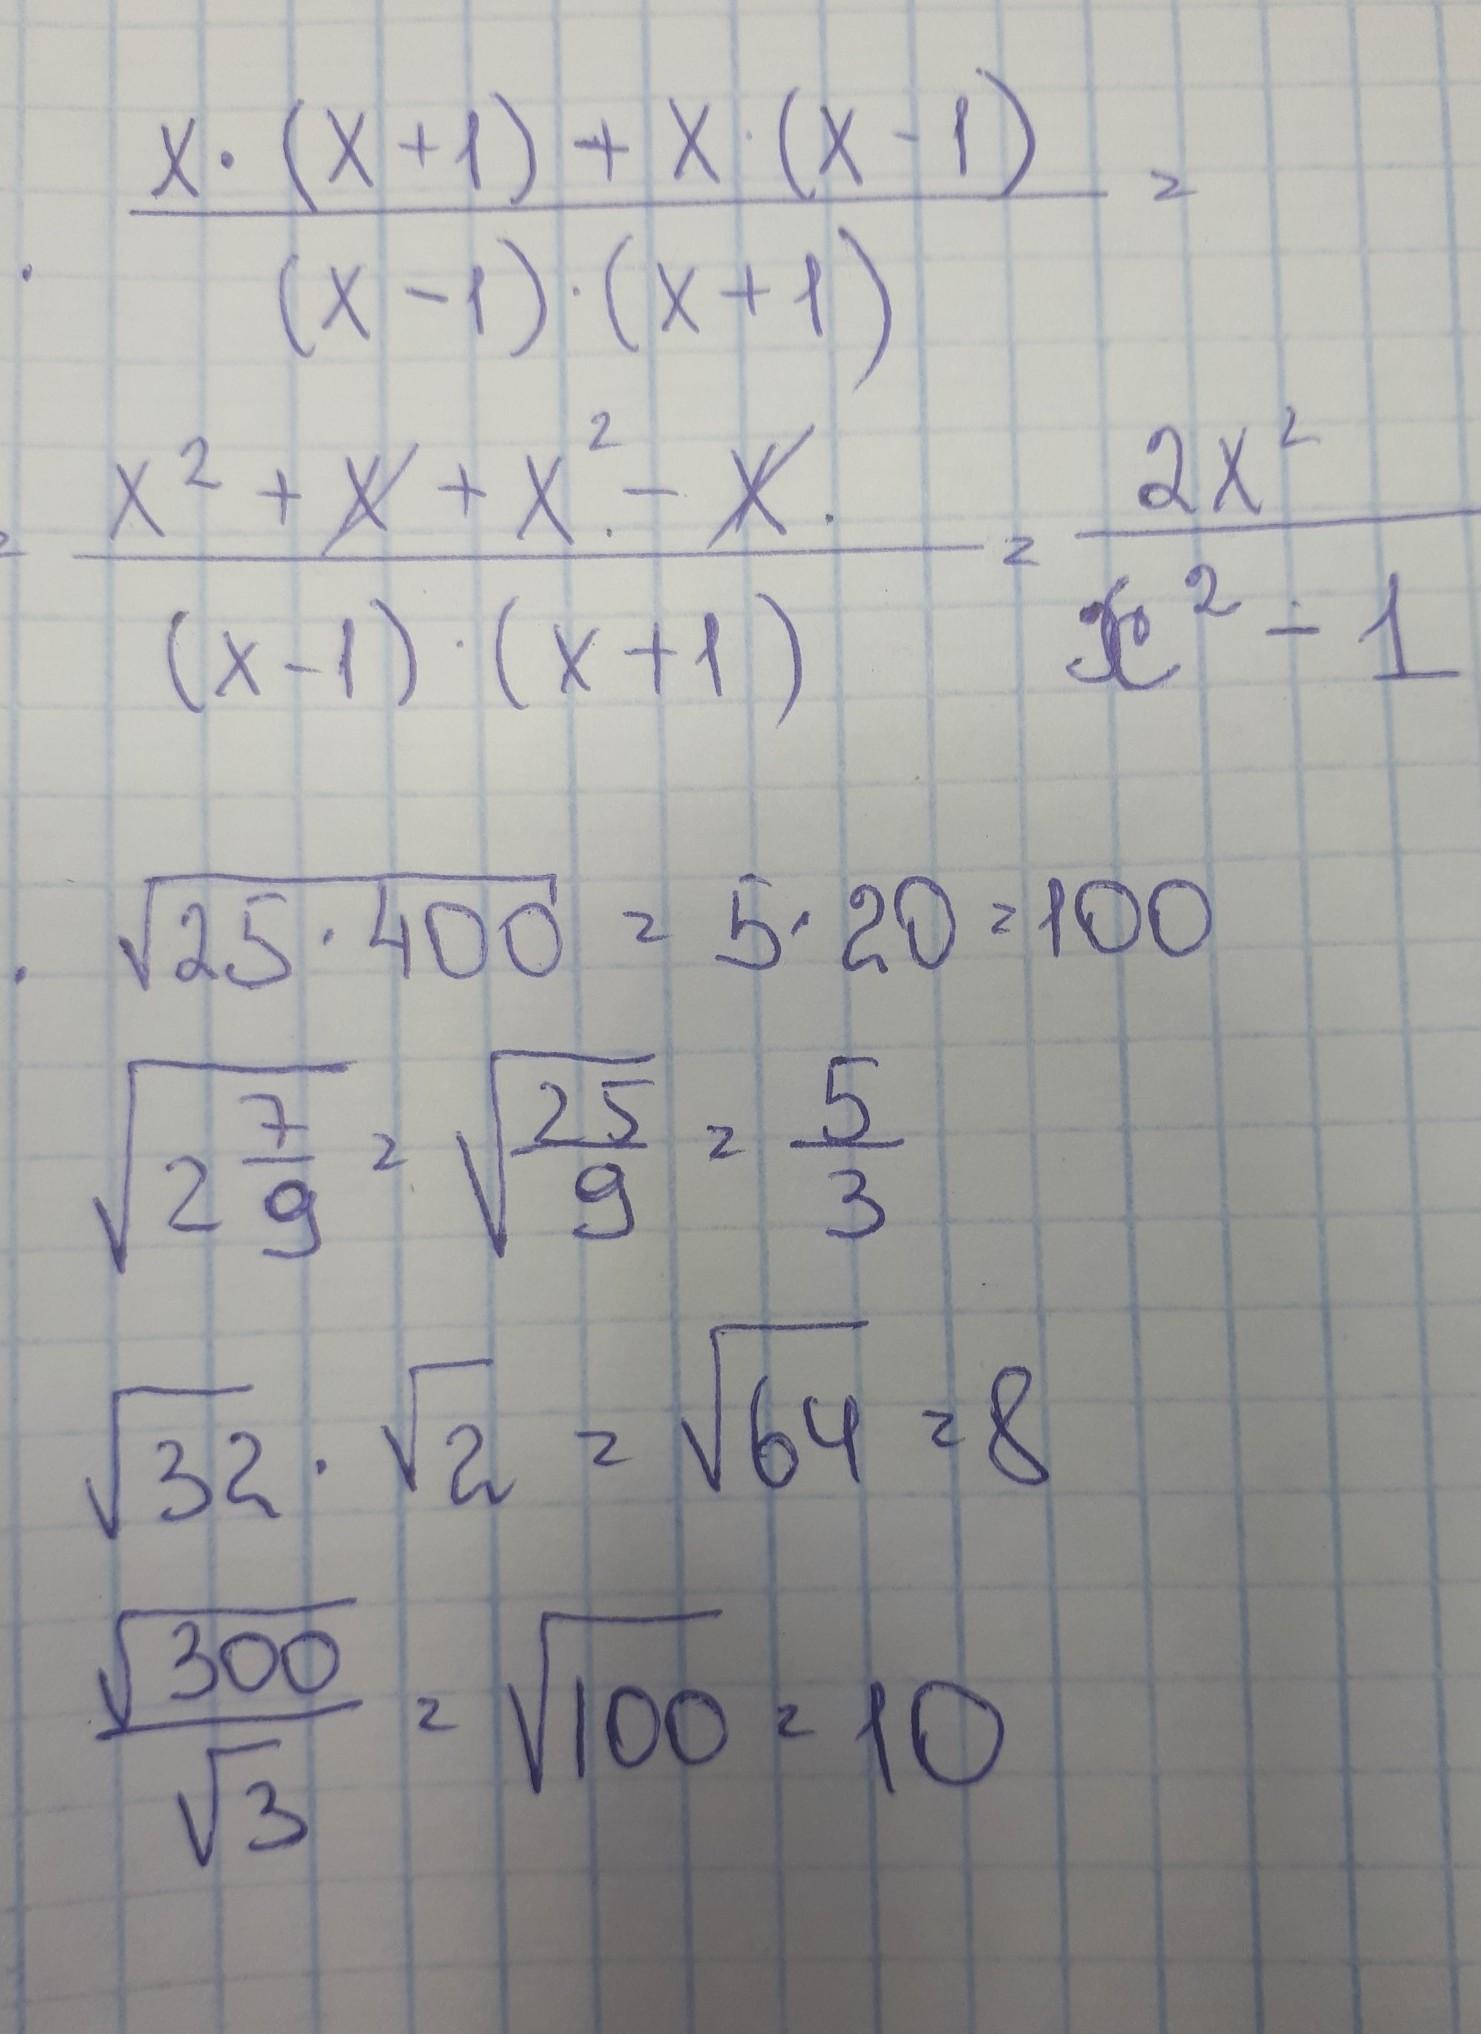 x·(x+1)+x·(x-1)/(x-1)·(x+1) =
= x²+x+x²-x/(x-1)·(x+1) = 2x²/x²-1
√25·400 = 5·20=100
√2 7/9 = √25/9 = 5/3
√32·√2 = √64 =8
√300/√3 = √100 = 10